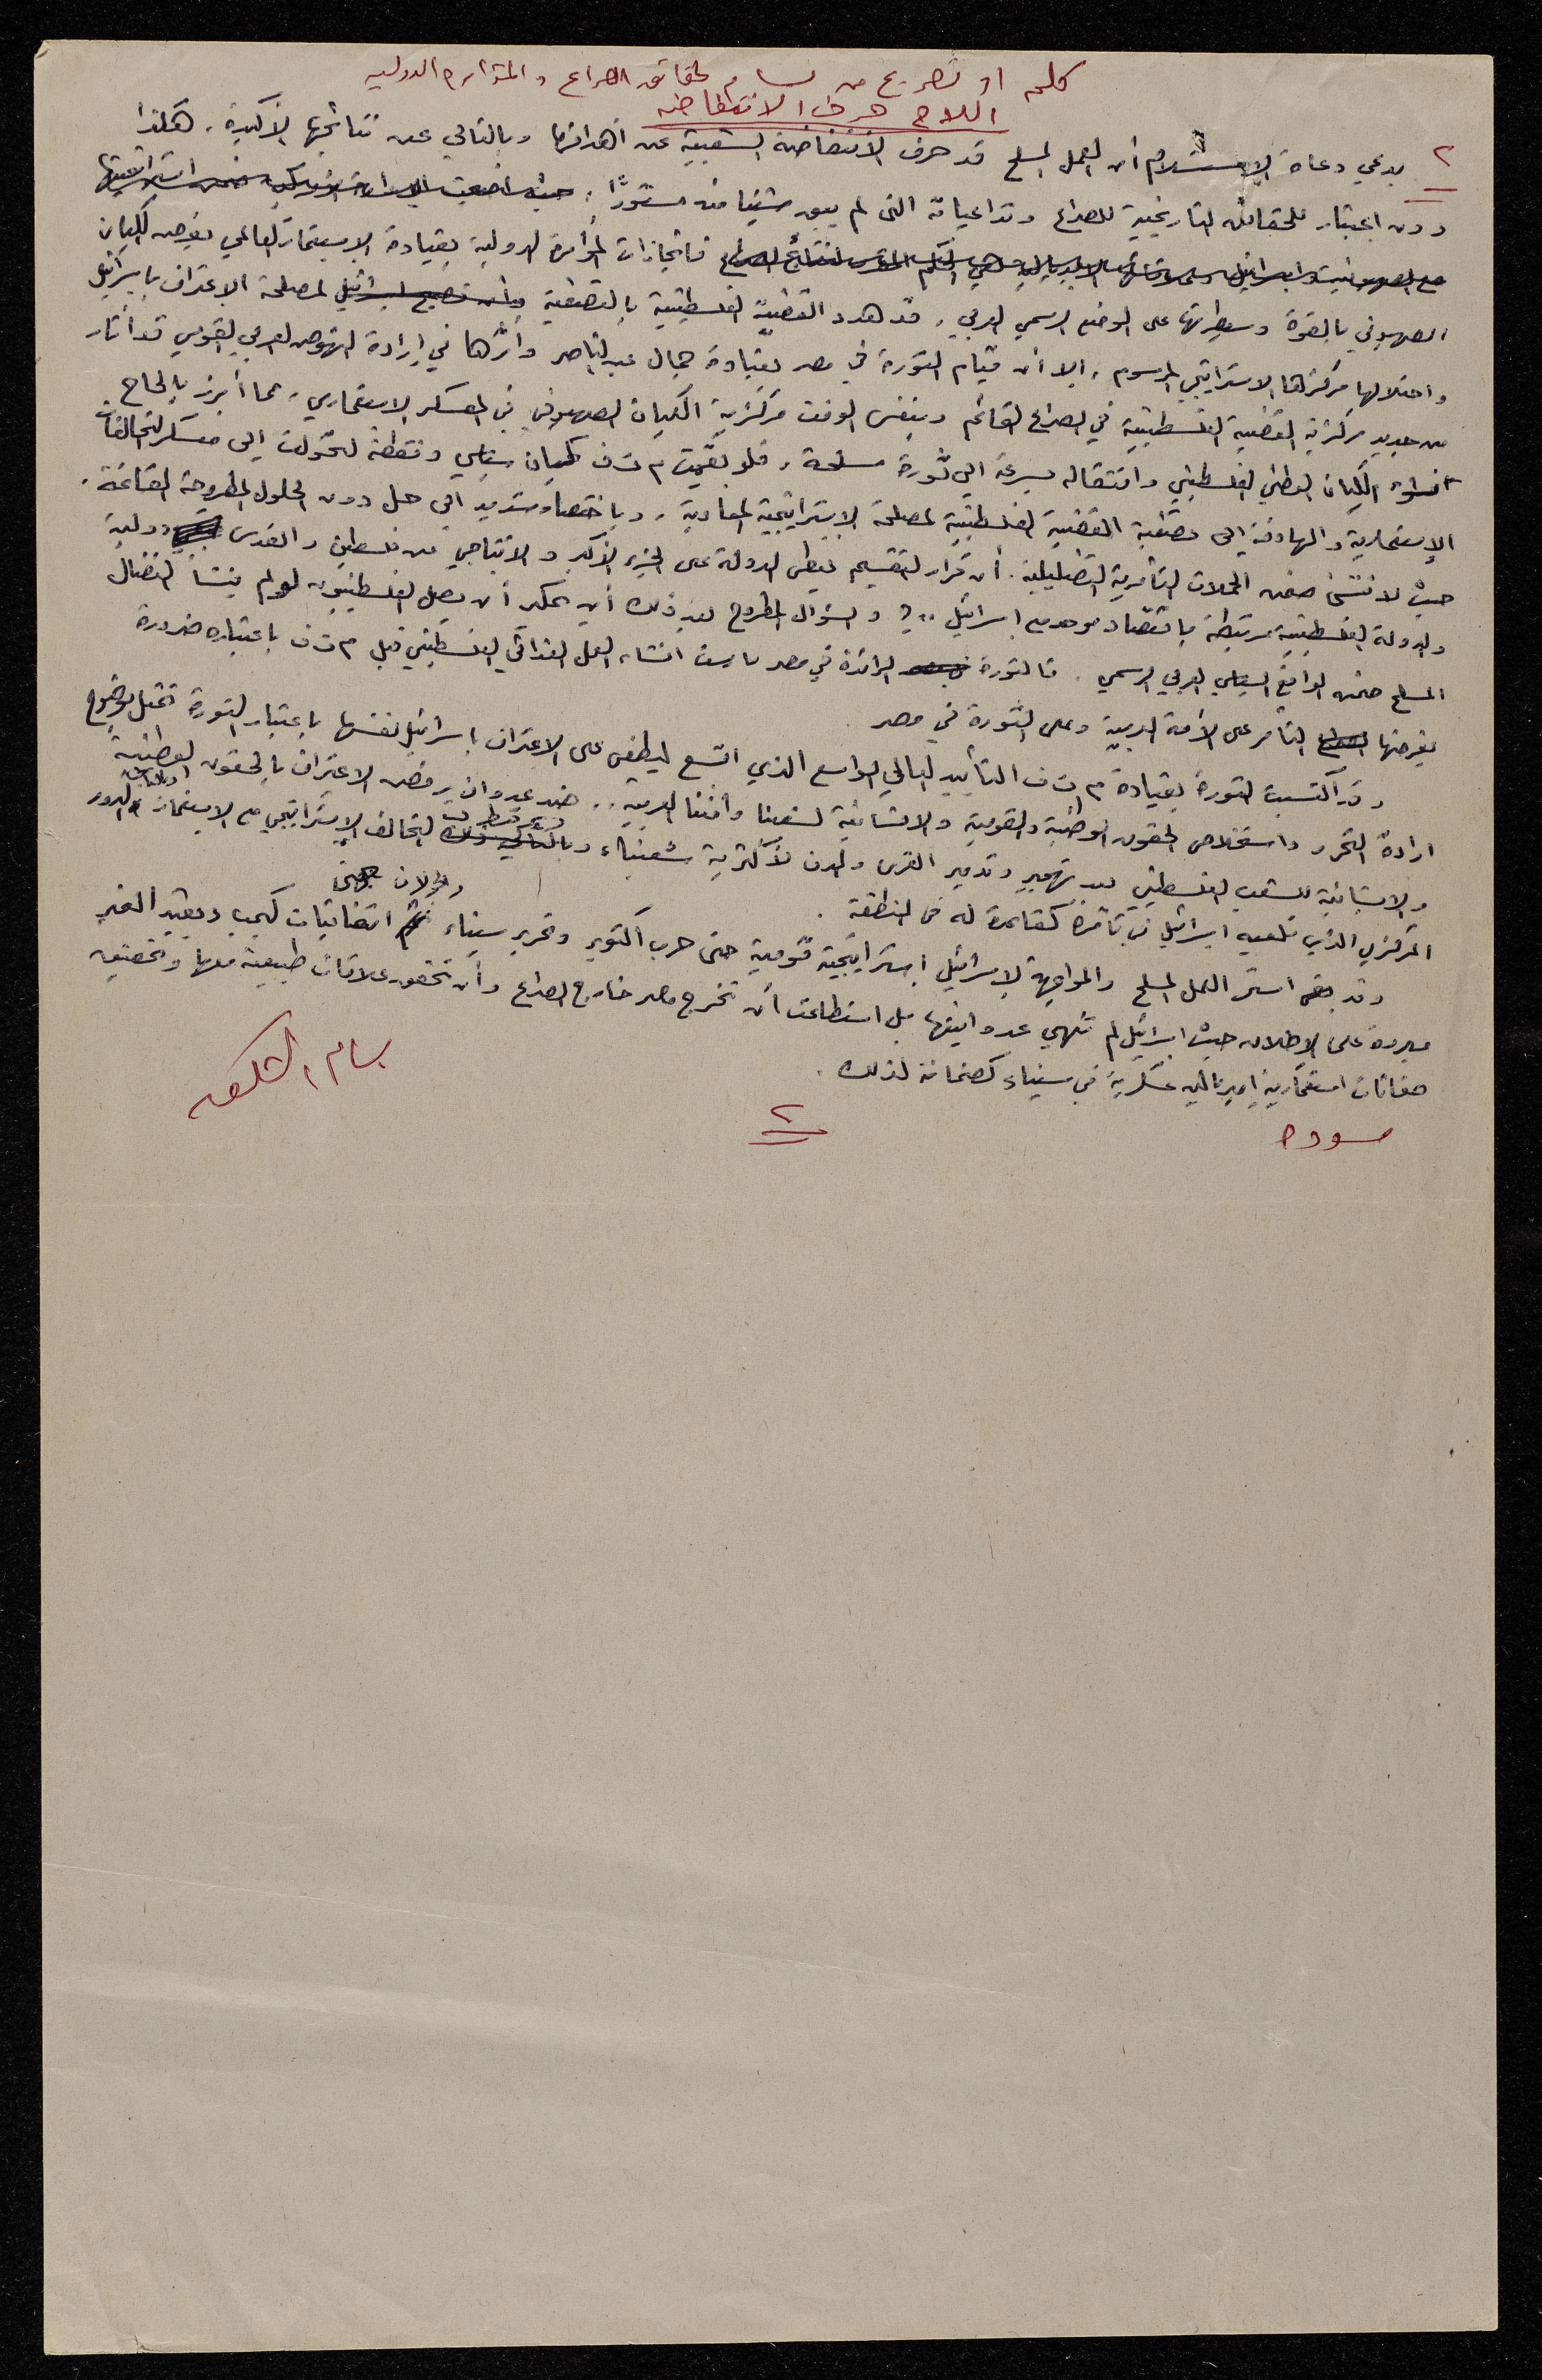 كلمه او تصريح من بسام لحقائق الصراع والمؤامره الدوليه
السلاح حرف الانتفاضه
٢ يدعي دعاة الإستسلام أن العمل المسلح قد حرف الانتفاضة الشعبية عن أهدافها وبالتالي عن نتائجها الأكيدة. هكذا
دون اعتبار للحقائق التاريخية للصراع وتداعياته التي لم يبق شيئا منه مستورًا.
فانجازات المؤامرة الدولية بقيادة الاستعمار العالمي بفرض الكيان
الصهيوني بالقوة وسيطرتها على الوضع الرسمي العربي، قد هدد القضية الفلسطينية بالتصفية وأن تصبح إسرائيل لمصلحة الاعتراف بإسرائيل
واحتلالها مركزها الاستراتيجي المرسوم، إلا أن قيام الثورة في مصر بقيادة جمال عبد الناصر وأثرها في إرادة النهوض العربي القومي قد أثار
من جديد مركزية القضية الفلسطينية في الصراع القائم وبنفس الوقت مركزية الكيان الصهيوني في المعسكر الاستعماري، مما أبرز بالحاح
انشاء الكيان الوطني الفلسطيني وانتقاله بسرعة الى ثورة مسلحة، فلو بقيت م ت ف ككيان سياسي وفقط لتحولت إلى معسكر التحالفات
الإستعمارية والهادفة إلى تصفية القضية الفلسطينية لمصلحة الاستراتيجية المعادية، وباختصار شديد الى حل دون الحلول المطروحة القائمة.
حيث لا ننسى ضمن الحملات التآمرية التضليلية. أن قرار التقسيم يعطي الدولة على الجزء الأكبر والانتاجي من فلسطين والقدس دولية
والدولة الفلسطينية مرتبطة باقتصاد موحد مع إسرائيل ..؟ والسؤال المطروح بعد ذلك أين يمكن أن يصل الفلسطينيون لو لم ينشأ النضال
المسلح ضمن الواقع السياسي العربي الرسمي. فالثورة الرائدة في مصر مارست انشاء العمل الفدائي الفلسطيني قبل م ت ف باعتباره ضرورة
يفرضها التآمر على الأمة العربية وعلى الثورة في مصر.
وقد أكتسبت الثورة بقيادة م ت ف التأييد العالمي الواسع الذي اتسع ليطغى على الاعتراف بإسرائيل نفسها باعتبار الثورة تمثل بوضوح
ارادة التحرر واستخلاص الحقوق الوطنية والقومية والانسانية لشعبنا وأمتنا العربية.. ضد عدوان يرفض الاعتراف بالحقوق الوطنية
والإنسانية للشعب الفلسطيني بعد تهجير وتدمير القرى والمدن لأكثرية شعبنا، التحالف الاستراتيجي مع الاستعمار والدور
المركزي الذي تلعبه إسرائيل كقاعدة له في المنطقة.
وقد استمر العمل المسلح والمواجهة لإسرائيل استراتيجية قومية حتى حرب اكتوبر وتحرير سيناء والجولان اتفاقيات كيمب ديفيد الغير
مبررة على الإطلاق حيث إسرائيل لم تنهي عدوانيتها بل استطاعت أن تخرج مصر خارج الصراع وأن تحقق علاقات طبيعية معها وتحقيق
ضمانات استعمارية إمبريالية عسكرية في سيناء كضمانة لذلك.
بسام الشكعه
مسوده
٢